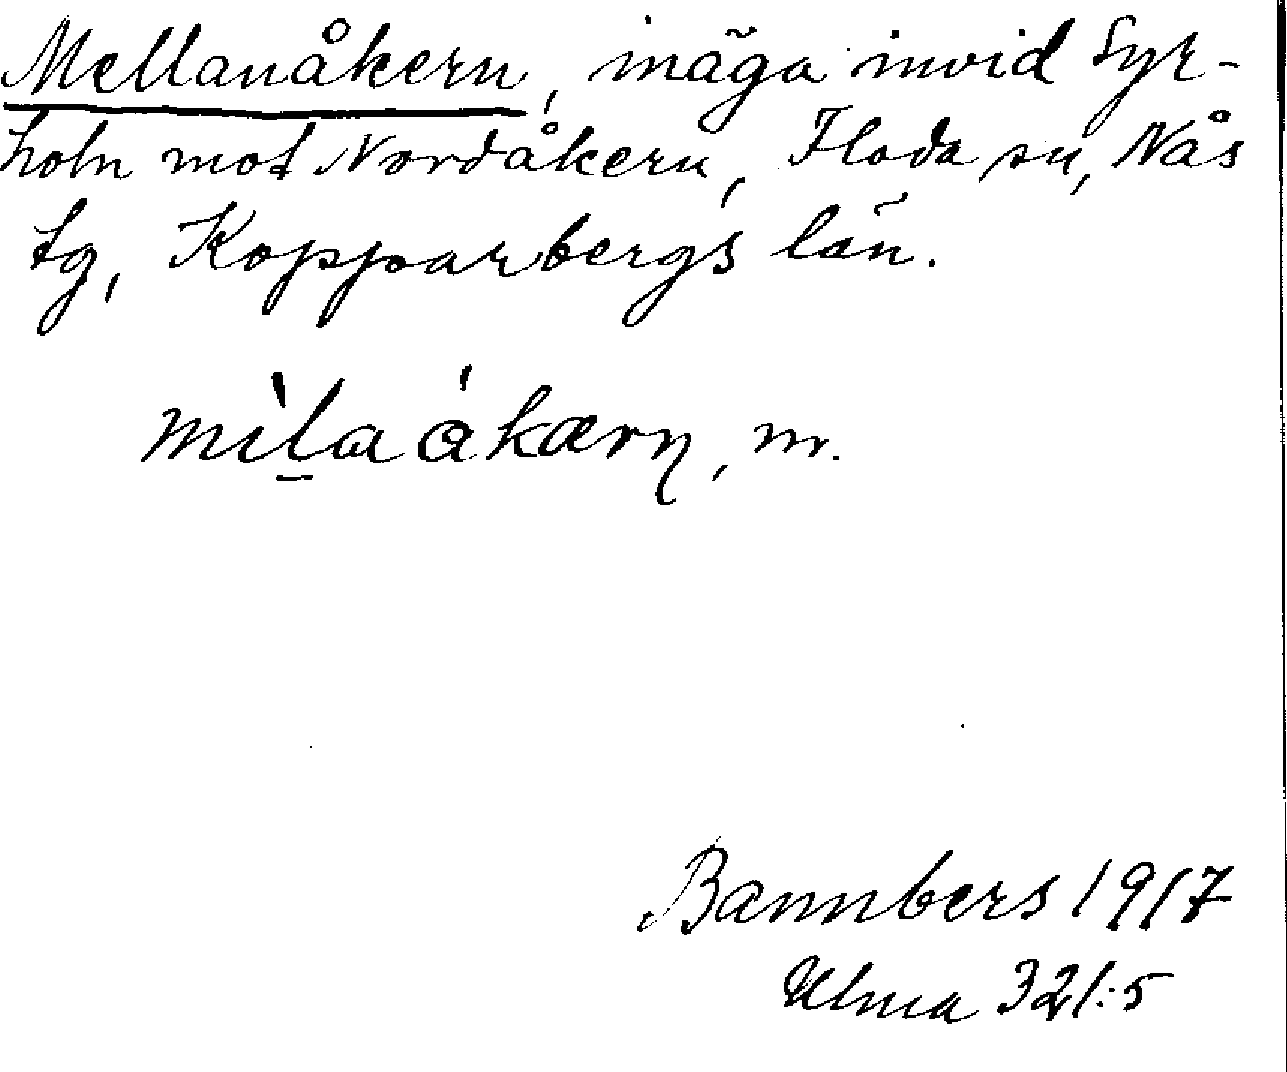 Mellanåkern, inäga invid Syr-
holn mot Nordåkern, Floda sn, Nås
tg, Kopparbergs län.
mìḻa åkærn, m.
Bannbers 1917
Ulma 321:5